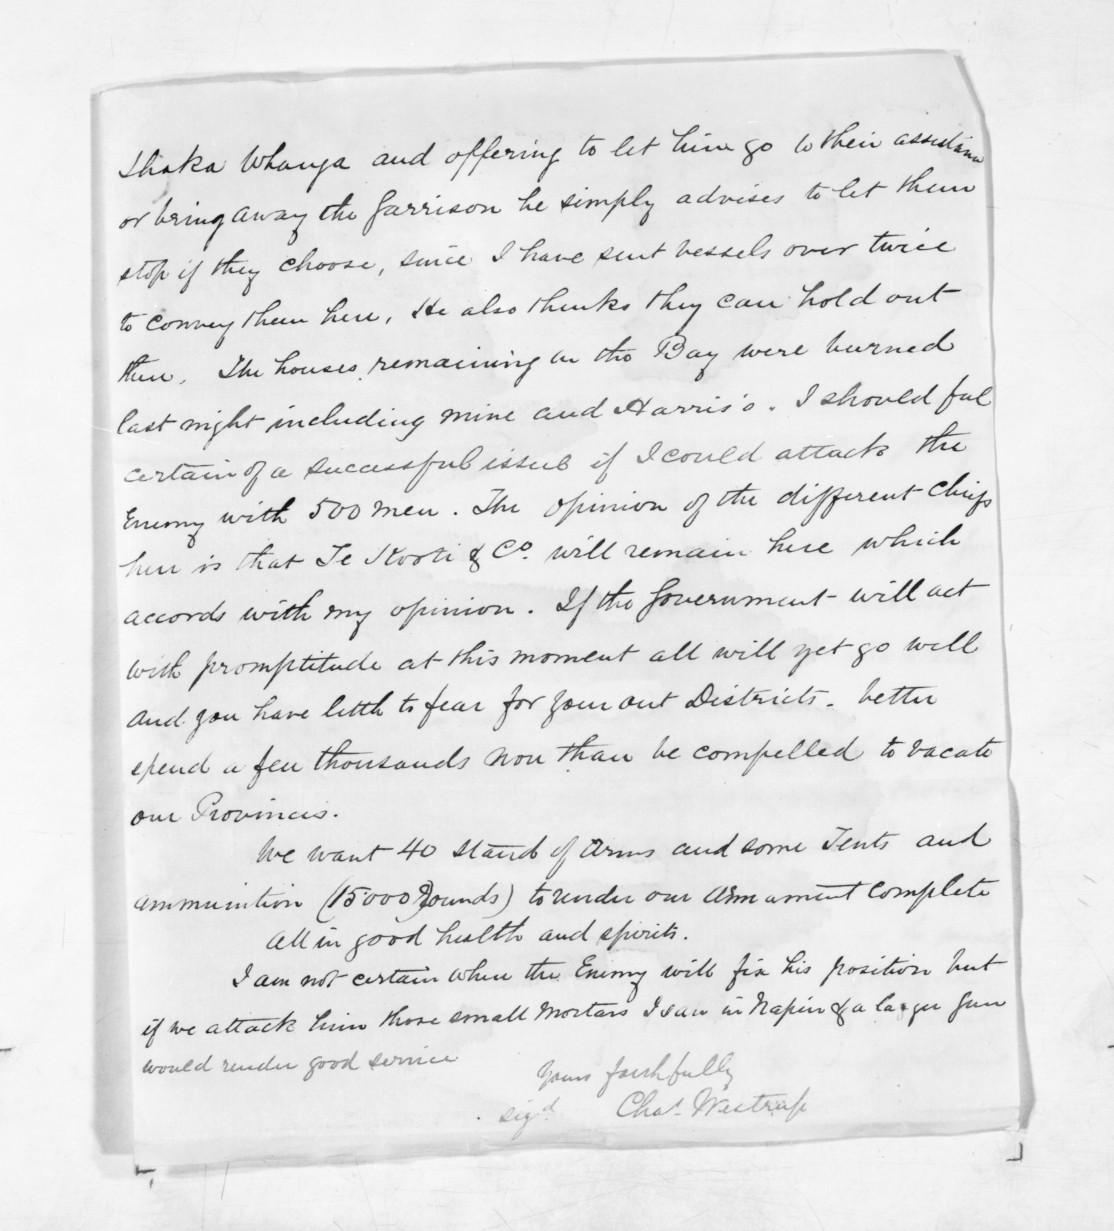 Ihaka Whanga and offering to let him go to their assistance
or bring away the Garrison he simply advises to let them
stop if they choose, since I have sent vessels over twice
to convey them here, He also thinks they can hold out
there. The houses remaining in the Bay were burned
last night including mine and Harris's. I should feel
certain of a successful issue if I could attack the
Enemy with 500 men. The opinion of the different Chiefs
here is that Te Kooti & Co. will remain here which
accords with my opinion. If the Government will act
with promptitude at this moment all will yet go well
and you have little to fear for your out Districts. better
spend a few thousands now than be compelled to vacate
our Provinces.
We want 40 stand of Arms and some Tents and
ammunition (15000 Rounds) to render our Armament complete
All in good health and spirits.
I am not certain when the Enemy will fix his position but
if we attack him those small Mortars I saw in Napier & a larger Gun
would render good service
Yours faithfully
sigd Chas. Westrup